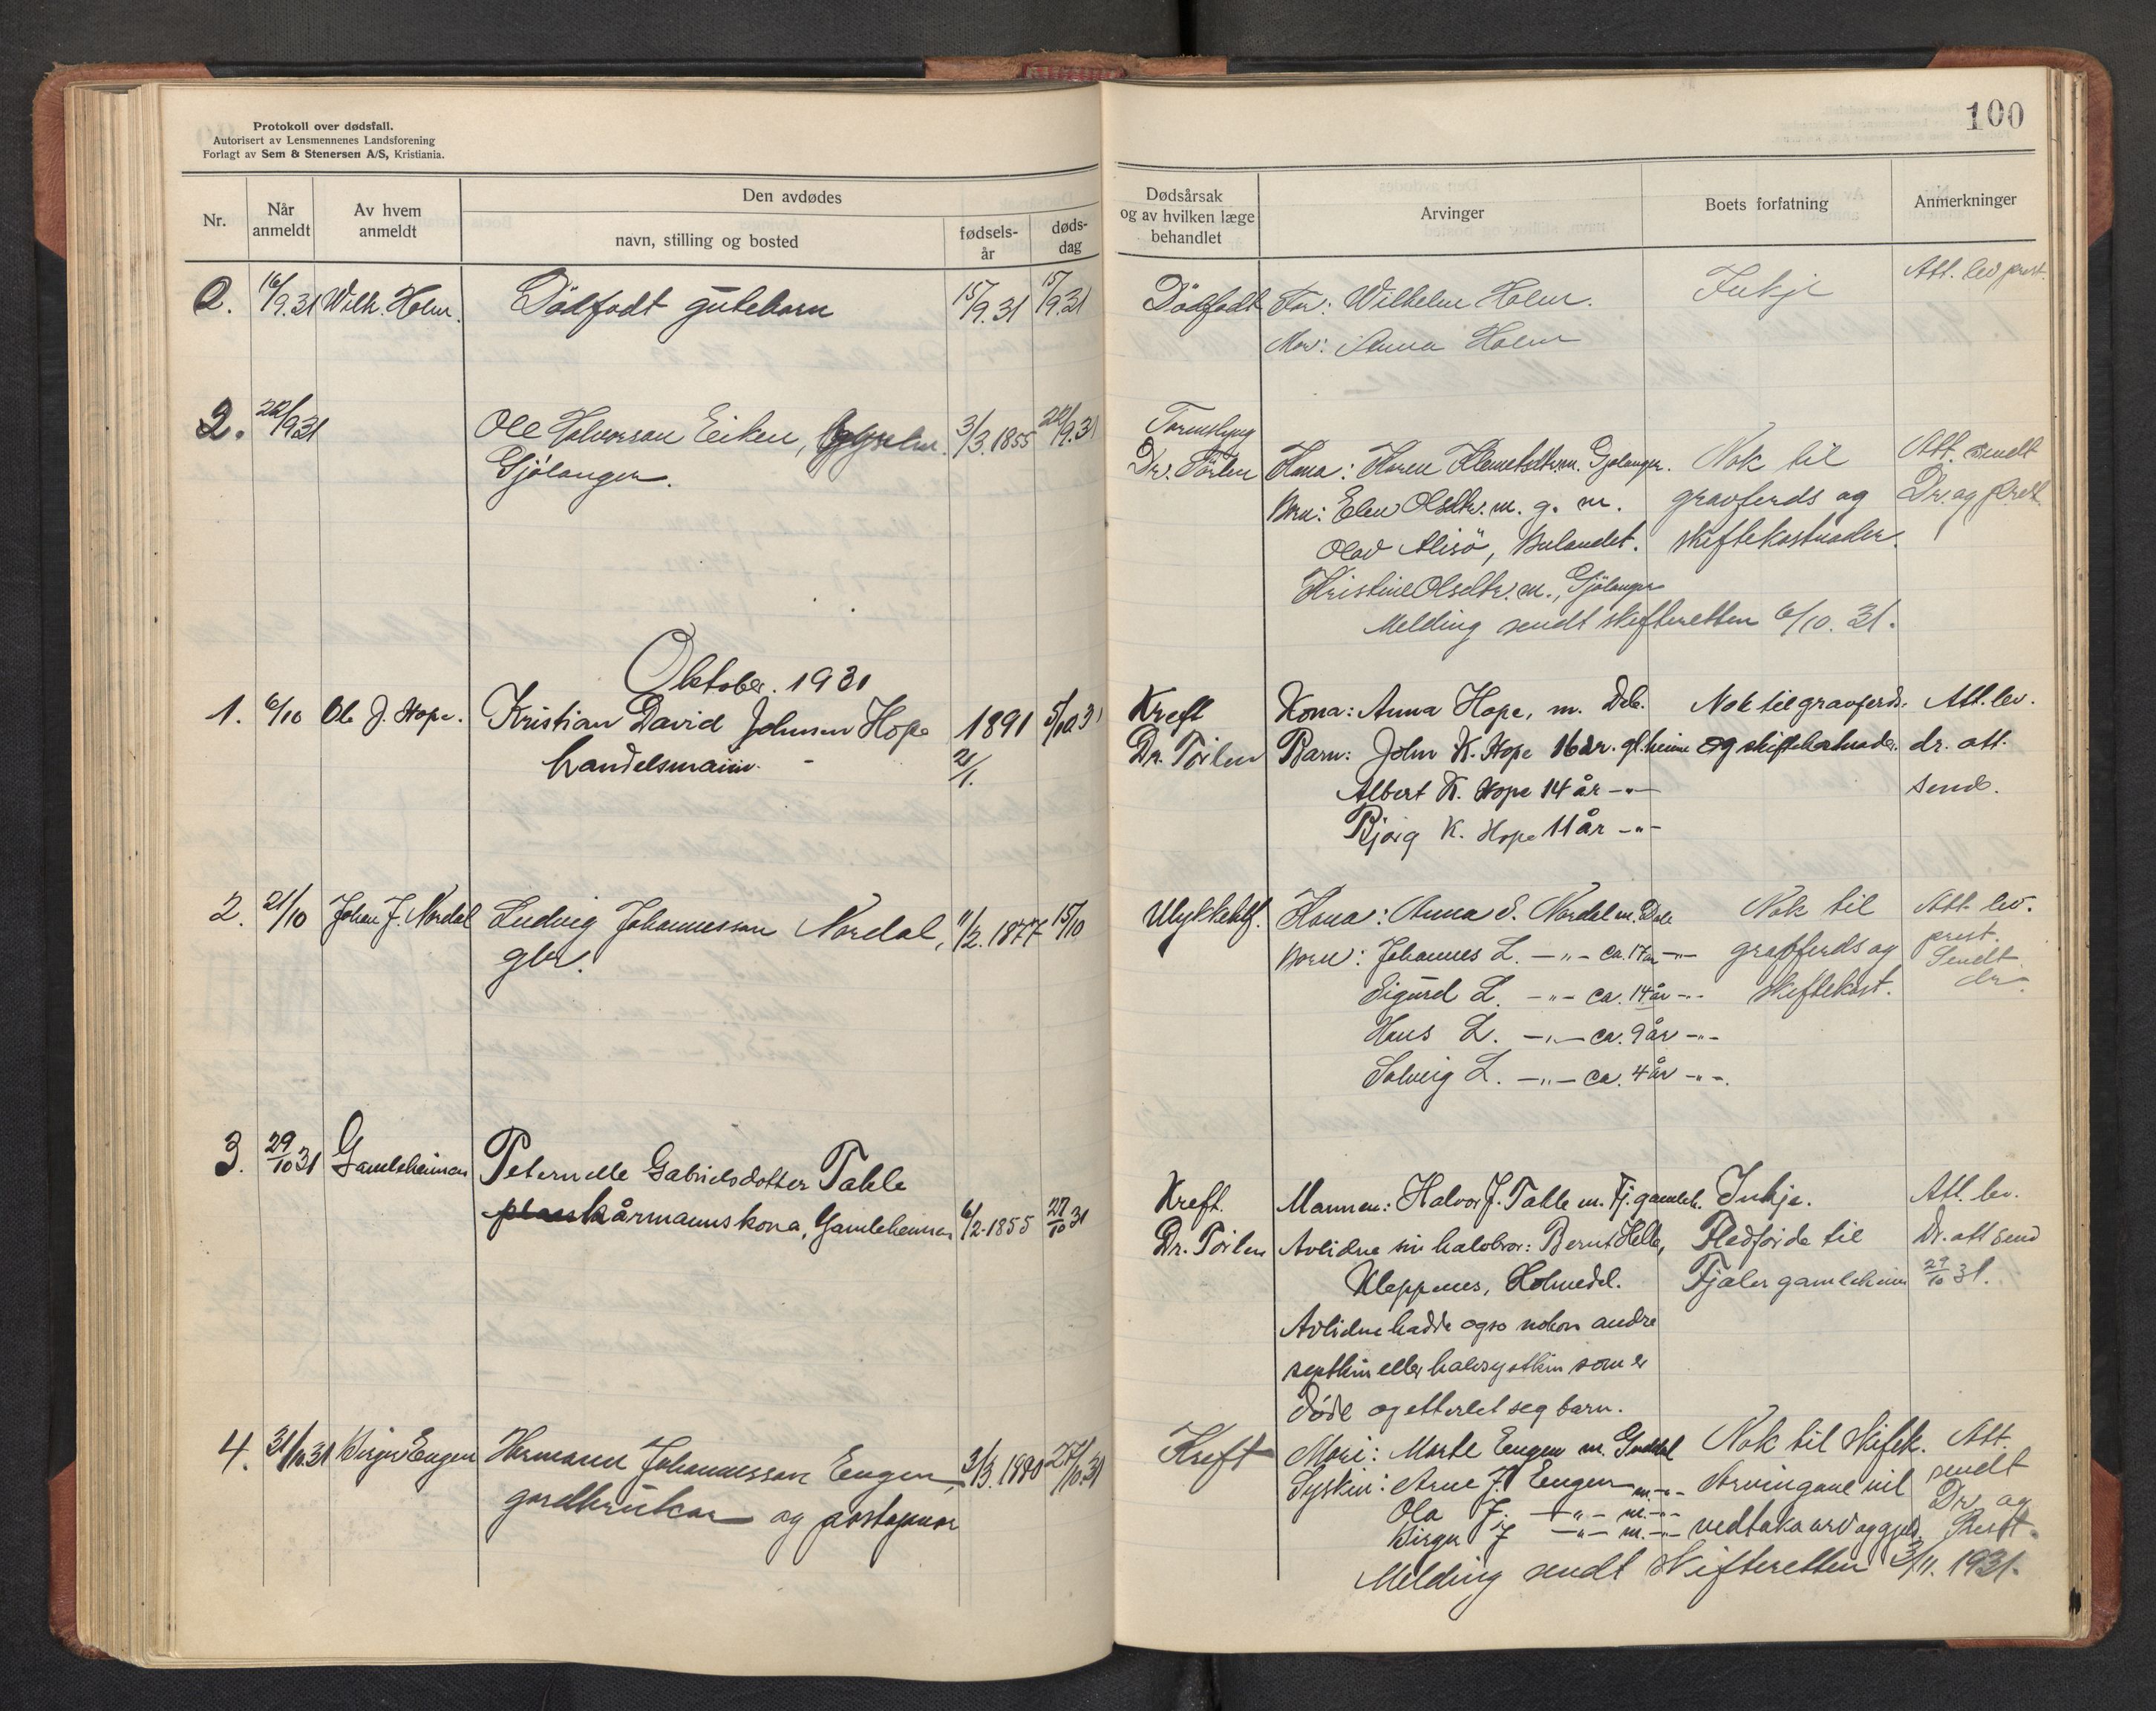 Protokoll over dødsfall.
Autorisert av Lensmennenes Landsforening
Forlagt av Sem & Stenersen A/S, Kristiania.
Nr.
Når
anmeldt
Av hvem
anmeldt
Den avdødes
navn, stilling og bosted
fødsels-
år
døds-
dag
2. 16/9.31 Wilh. Holm. Dödfödt gutebarn 15/9.31 15/9.31
2. 22/9.31 Ole Halvorson Eiken, 3/3.1855 22/9.31
Gjölanger.
Oktober. 1931
1. 6/10 Ole J. Hope. Kristian David Johnsen Hope 1891 5/10.31
handelsmann. 2/1.
2. 21/10 Johan J. Nordal Ludvig Johannesson Nordal, 11/2.1877 15/10
gbr.
3. 29/10 31 Gamleheimen Peternelle Gabrielsdotter Takle
kårmannskona, Gamleheimen 6/2-1855 27/10 31
4. 31/10.31 Birger Engen Hermann Johannesson Engen, 3/3.1890 27/10.31
gardbrukar og postopnar
100
Dødsårsak
og av hvilken læge
behandlet
Arvinger
Boets forfatning
Anmerkninger
Dödfödt Far: Wilhelm Holm. Inkje Att. lev prest.
Mor: Anna Holm
Dr. Törlen Kona: Karen Klemetsdtr. m. Gjölanger. Nok til Att. sendt
Born: Elen Olsdtr. m. g. m. gravferds og Dr. og prest
Olav Alisö, Bulandet. skiftekostnader.
Kristine Olsdtr. m., Gjölanger
Melding sendt skifteretten 6/10. 31.
Kreft Kona: Anna Hope, m. Dale. Nok til gravferds. Att. lev.
Dr. Törlen Barn: John K. Hope 16 år. gl. heime og skiftekostnader. dr. att.
Albert K. Hope 14 år -"- send.
Bjørg K. Hope 11 år -"-
Ulykkestilf. Kona: Anna S. Nordal m. Dale Nok til Att. lev.
Born: Johannes L. -"- ca. 17 år -"- gravferds og prest.
Sigurd L. -"- ca. 14 år -"- skiftekost. Sendt
dr.
Hans L. -"- ca. 9 år -"-
Solveig L. -"- ca. 4 år -"-.
Kreft. Mannen: Halvor J. Takle m. Fj. gamleh. Inkje. Att. lev.
Dr. Törlen Avlidne sin halvbror: Bernt Helle, Fledförde til Dr. att send
Kleppenes, Holmedal. Fjaler gamleheim 29/10 31.
Avlidne hadde ogso nokon andre
systkin eller halvsystkin som er
döde og etterlet seg barn.
Kreft Mori: Marte Engen m. Guddal Nok til skiftek. Att.
Syskin: Arne J. Engen m. -"- Arvingane vil sendt
Ola J. -"- m. -"- Dr. og
Birger J -"- m. -"- vedtaka arv og gjeld. Prest.
Melding sendt skifteretten 3/11. 1931.